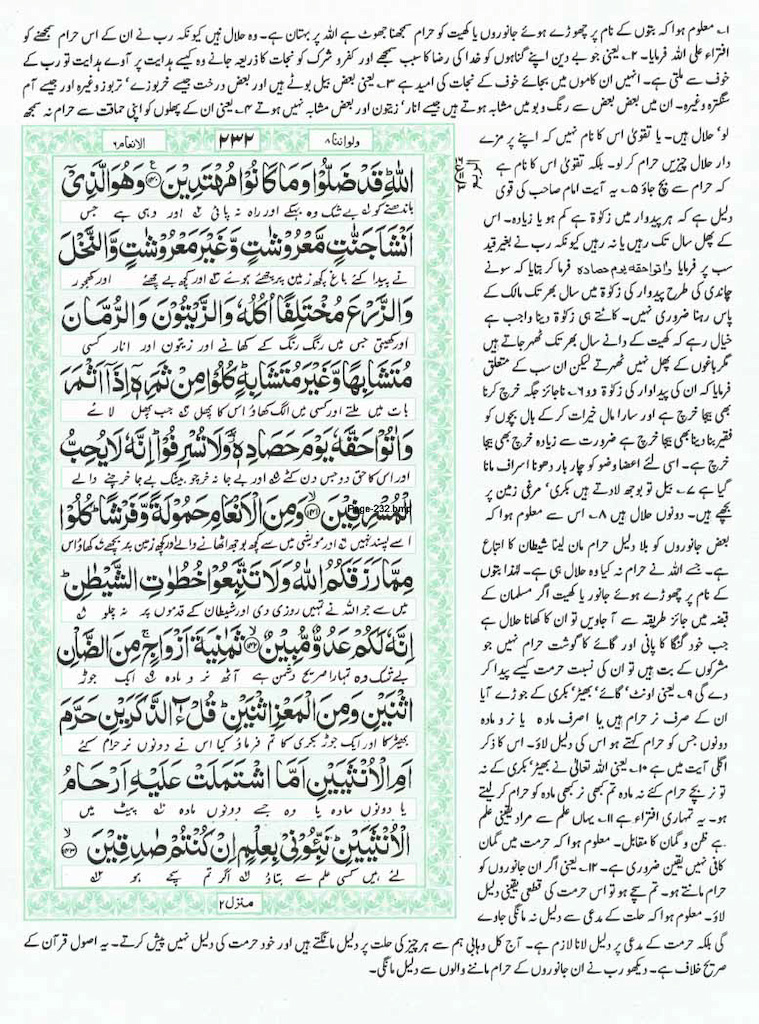 ۱۔ معلوم ہوا کہ بتوں کے نام پر چھوڑے ہوئے جانوروں یا کھیت کو حرام سمجھنا جھوٹ ہے اللہ پر بہتان ہے۔ وہ حلال ہیں کیونکہ رب نے ان کے اس حرام سمجھنے کو
افتراء علی اللہ فرمایا۔ ۲۔ یعنی جو بے دین اپنے گناہوں کو خدا کی رضا کا سبب سمجھے اور کفر و شرک کو نجات کا ذریعہ جانے وہ کیسے ہدایت پر آوے ہدایت تو رب کے
خوف سے ملتی ہے۔ انہیں ان کاموں میں بجائے خوف کے نجات کی امید ہے ۳۔ یعنی بعض بیل بوٹے ہیں اور بعض درخت جیسے خربوزے‘ تربوز وغیرہ اور جیسے آم
سنگترہ وغیرہ۔ ان میں بعض بعض سے رنگ و بو میں مشابہ ہوتے ہیں جیسے انار‘ زیتون اور بعض مشابہ نہیں ہوتے ۴۔ یعنی ان کے پھلوں کو اپنی حماقت سے حرام نہ سمجھ
لو‘ حلال ہیں۔ یا تقویٰ اس کا نام نہیں کہ اپنے پر مزے
دار حلال چیزیں حرام کر لو۔ بلکہ تقویٰ اس کا نام ہے
کہ حرام سے بچ جاؤ ۵۔ یہ آیت امام صاحب کی قوی
دلیل ہے کہ ہر پیداوار میں زکوٰۃ ہے کم ہو یا زیادہ۔ اس
کے پھل سال تک رہیں یا نہ رہیں کیونکہ رب نے بغیر قید
سب پر فرمایا واتوا حقہ یوم حصادہ فرما کر بتایا کہ سونے
چاندی کی طرح پیداوار کی زکوٰۃ میں سال بھر تک مالک کے
پاس رہنا ضروری نہیں۔ کاٹتے ہی زکوٰۃ دینا واجب ہے
خیال رہے کہ کھیت کے دانے سال بھر تک ٹھہر جاتے ہیں
مگر باغوں کے پھل نہیں ٹھہرتے لیکن ان سب کے متعلق
فرمایا کہ ان کی پیداوار کی زکوٰۃ دو ۶۔ ناجائز جگہ خرچ کرنا
بھی بیجا خرچ ہے اور سارا مال خیرات کر کے بال بچوں کو
فقیر بنا دینا بھی بیجا خرچ ہے ضرورت سے زیادہ خرچ بھی بیجا
خرچ ہے۔ اسی لئے اعضا وضو کو چار بار دھونا اسراف مانا
گیا ہے ۷۔ بیل تو بوجھ لادتے ہیں بکری‘ مرغی زمین پر
بچھے ہیں۔ دونوں حلال ہیں ۸۔ اس سے معلوم ہوا کہ
بعض جانوروں کو بلا دلیل حرام مان لینا شیطان کا اتباع
ہے۔ جسے اللہ نے حرام نہ کیا وہ حلال ہی ہے۔ لہٰذا بتوں
کے نام پر چھوڑے ہوئے جانور یا کھیت اگر مسلمان کے
قبضہ میں جائز طریقہ سے آ جاویں تو ان کا کھانا حلال ہے
جب خود گنگا کا پانی اور گائے کا گوشت حرام نہیں جو
مشرکوں کے بت ہیں تو ان کی نسبت حرمت کیسے پیدا کر
دے گی ۹۔ یعنی اونٹ‘ گائے‘ بھیڑ‘ بکری کے جوڑے آیا
ان کے صرف نر حرام ہیں یا صرف مادہ یا نر و مادہ
دونوں جس کو حرام کہتے ہو اس کی دلیل لاؤ۔ اس کا ذکر
اگلی آیت میں ہے ۱۰۔ یعنی اللہ تعالیٰ نے بھیڑ‘ بکری کے نہ
تو نر بچے حرام کئے نہ مادہ تم کبھی نر کبھی مادہ کو حرام کر لیتے
ہو۔ یہ تمہاری افتراء ہے ۱۱۔ یہاں علم سے مراد یقینی علم
ہے ظن و گمان کا مقابل۔ معلوم ہوا کہ حرمت میں گمان
کافی نہیں یقین ضروری ہے۔ ۱۲۔ یعنی اگر ان جانوروں کو
حرام مانتے ہو۔ تم سچے ہو تو اس حرمت کی قطعی یقینی دلیل
لاؤ۔ معلوم ہوا کہ حلت کے مدعی سے دلیل نہ مانگی جاوے
گی بلکہ حرمت کے مدعی پر دلیل لانا لازم ہے۔ آج کل وہابی ہم سے ہر چیز کی حلت پر دلیل مانگتے ہیں اور خود حرمت کی دلیل نہیں پیش کرتے۔ یہ اصول قرآن کے
صریح خلاف ہے۔ دیکھو رب نے ان جانوروں کے حرام ماننے والوں سے دلیل مانگی۔
ولواننا ۸ ۲۳۲ الانعام ۶
اللّٰهِ قَدْ ضَلُّوْا وَمَا كَانُوْا مُهْتَدِيْنَ ﴿۱۴۰﴾ وَهُوَ الَّذِيْٓ
باندھنے کو بے شک وہ بہکے اور راہ نہ پائی اور وہی ہے جس
اَنْشَاَ جَنّٰتٍ مَّعْرُوْشٰتٍ وَّغَيْرَ مَعْرُوْشٰتٍ وَّالنَّخْلَ
نے پیدا کئے باغ کچھ زمین پر چھئے ہوئے اور کچھ بے چھئے اور کھجور
وَالزَّرْعَ مُخْتَلِفًا اُكُلُهٗ وَالزَّيْتُوْنَ وَالرُّمَّانَ
اور کھیتی جس میں رنگ رنگ کے کھانے اور زیتون اور انار کسی
مُتَشَابِهًا وَّغَيْرَ مُتَشَابِهٍ كُلُوْا مِنْ ثَمَرِهٖٓ اِذَآ اَثْمَرَ
بات میں ملتے اور کسی میں الگ کھاؤ اس کا پھل جب پھل لائے
وَاٰتُوْا حَقَّهٗ يَوْمَ حَصَادِهٖ وَلَا تُسْرِفُوْا اِنَّهٗ لَا يُحِبُّ
اور اس کا حق دو جس دن کٹے اور بے جا نہ خرچو بیشک بے جا خرچنے والے
الْمُسْرِفِيْنَ ﴿۱۴۱﴾ وَمِنَ الْاَنْعَامِ حَمُوْلَةً وَّفَرْشًا كُلُوْا
Page-232.bmp
اسے پسند نہیں اور مویشی میں سے کچھ بوجھ اٹھانے والے اور کچھ زمین پر بچھے کھاؤ اس
مِمَّا رَزَقَكُمُ اللّٰهُ وَلَا تَتَّبِعُوْا خُطُوٰتِ الشَّيْطٰنِ
میں سے جو اللہ نے تمہیں روزی دی اور شیطان کے قدموں پر نہ چلو
اِنَّهٗ لَكُمْ عَدُوٌّ مُّبِيْنٌ ﴿۱۴۲﴾ ثَمٰنِيَةَ اَزْوَاجٍ مِنَ الضَّاْنِ
بے شک وہ تمہارا صریح دشمن ہے آٹھ نر و مادہ ایک جوڑ
اثْنَيْنِ وَمِنَ الْمَعْزِ اثْنَيْنِ قُلْ ءٰٓالذَّكَرَيْنِ حَرَّمَ
بھیڑ کا اور ایک جوڑ بکری کا تم فرماؤ کیا اس نے دونوں نر حرام کئے
اَمِ الْاُنْثَيَيْنِ اَمَّا اشْتَمَلَتْ عَلَيْهِ اَرْحَامُ
یا دونوں مادہ یا وہ جسے دونوں مادہ پیٹ میں
الْاُنْثَيَيْنِ نَبِّـُٔوْنِيْ بِعِلْمٍ اِنْ كُنْتُمْ صٰدِقِيْنَ ﴿۱۴۳﴾
لئے ہیں کسی علم سے بتاؤ اگر تم سچے ہو
منزل ۲